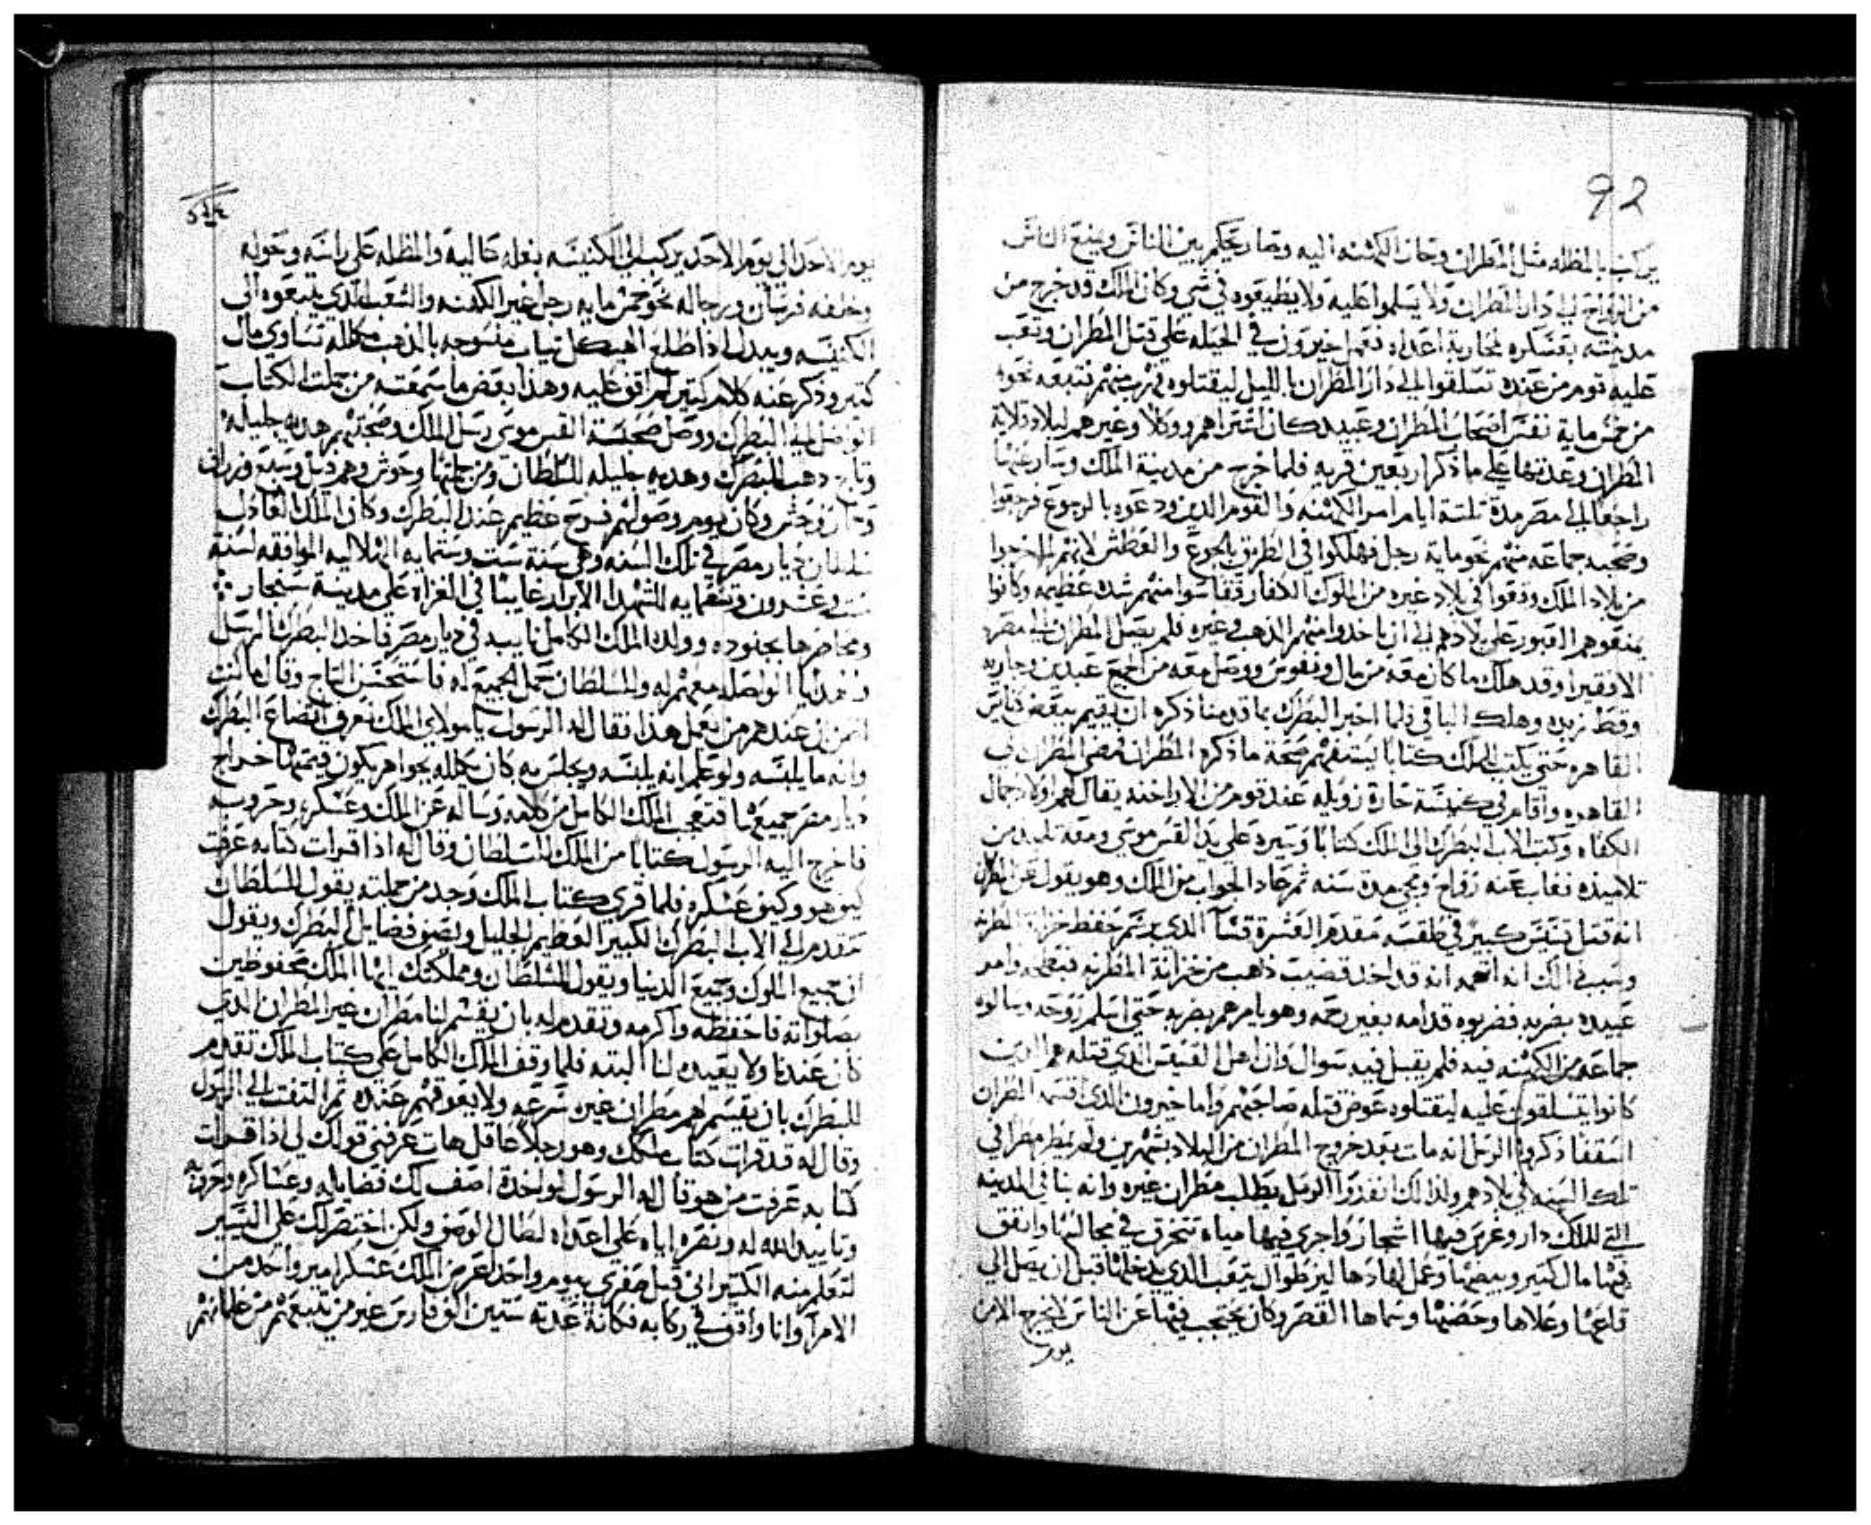 92
يركب بالمظله مثل المطران وتحاز الكهنه اليه وصار يحكم بين الناس ويمنع الناس
من الرواح الى دار المطران ولا يسلموا عليه ولا يطيعوه في شي وكان الملك قد خرج من
مدينته بعسكره لمحاربة اعداه فعمل خيرون في الحيله على قتل المطران وتعب
عليه قوم من عنده تسلقوا الى دار المطران بالليل ليقتلوه فهرب منهم فتبعه نحو
من خمس ماية نفس اصحاب المطران وعبيده كان اشتراهم ووكلا وغيرهم لبلاد قلاية
المطران وعدتها على ما ذكر اربعين قريه فلما خرج من مدينة الملك وسار عنها
راجعا الى مصر مدة تلتة ايام امر الكهنه والقوم الدين ودعوه بالرجوع فرجعوا
وصحبه جماعه منهم نحو ماية رجل فهلكوا في الطريق بالجوع والعطش لانهم لما خرجوا
من بلاد الملك وقعوا في بلاد غيره من الملوك الكفار فقاسوا منهم شده عظيمه وكانوا
يمنعوهم العبور على بلادهم الى ان ياخدوا منهم الدهب وغيره فلم يصل المطران الى مصر
الا فقيرا وقد هلك ما كان معه من مال ونفوس ووصل معه من الجميع عبدين وجاريه
وقط زباد وهلك الباقي فلما اخبر البطرك بما قدمنا ذكره ان يقيم ببعض كنايس
القاهره حتى يكتب الى الملك كتابا يستفهم صحة ما ذكره المطران فمضى المطران الى
القاهره واقام في كنيسة حارة زويله عند قوم من الاراخنه يقال لهم اولاد جمال
الكفاه وكتب الاب البطرك الى الملك كتابا وسيره على يد القس موسى ومعه تلميدين
تلاميده فغاب عنه رواح ومجي مدة سنه ثم عاد الجواب من الملك وهو يقول عن المطران
انه قتل قسيس كبير في طقسه مقدم العشرة قسا الدي برسم حفظ خزانة المطرنه
وسبب دلك انه اتهمه انه قد اخد قضيب دهب من خزانة المطرنه فبطحه وامر
عبيده بضربه فضربوه قدامه بغير رحمه وهو يامرهم بضربه حتى اسلم روحه وسالوه
جماعه من الكهنه فيه فلم يقبل فيه سوال وان اهل القسيس الدي قتله هم الدين
كانوا يتسلقون عليه ليقتلوه عوض قتله صاحبهم واما خيرون الدي اقسمه المطران
اسقفا دكروا الرسل انه مات بعد خروج المطران من البلاد بشهرين ولم تمطر مطرا في
تلك السنه في بلادهم ولدلك انفدوا الرسل بطلب مطران غيره وانه بنا في المدينه
التي للملك دار وغرس فيها اشجار واجرى فيها مياه تتخرق في مجالسها وانفق
فيها مال كثير وبيضها وعمل لها درجا ليز طوال يتعب الدي يدخلها قبل ان يصل الى
قاعتها وعلاها وحصنها وسماها القصر وكان يحتجب فيها عن الناس لا يخرج الا من
يوم
يوم الاحد الى يوم الاحد يركب الى الكنيسه بغله عاليه والمظله على راسه وحوله
وخلفه فرسان ورجاله نحو خمس مايه رجل غير الكهنه والشعب الدي يتبعوه الى
الكنيسه ويبدل ادا طلع الهيكل تياب منسوجه بالدهب مكلله تساوي مال
كثير ودكر عنه كلام كتير لم اقف عليه وهدا بعض ما سمعته من جملت الكتاب
الواصل الى البطرك ووصل صحبة القس موسى رسل الملك وصحبتهم هديه جليله
وتاج دهب للبطرك وهديه جليله للسلطان ومن جملتها وحوش وهم فيل وسبع وزرافه
وحمار وحش وكان يوم وصولهم فرح عظيم عند البطرك وكان الملك العادل
سلطان ديار مصر في تلك السنه وهي سنة ست وستمايه الهلاليه الموافقه لسنة
ست وعشرون وتسعمايه للشهدا الابرار غايبا في الغزاة على مدينة سنجار
ومحاصرها بجنوده وولده الملك الكامل نايبه في ديار مصر فاخد البطرك الرسل
والهدايا الواصله معهم له وللسلطان حمل الجميع له فاستحسن التاج وقال ما كنت
اظن ان عندهم من يعمل هدا فقال له الرسول يا مولاي الملك نعرف اتضاع البطرك
وانه ما يلبسه ولو علم انه يلبسه ويجلس به كان يكلله بجواهر يكون قيمتها خراج
ديار مصر جميعها فتعجب الملك الكامل من كلامه وساله عن الملك وعسكره وحروبه
فاخرج اليه الرسول كتابا من الملك للسلطان وقال له ادا قرات كتابه عرفت
كيف هو وكيف عسكره فلما قري كتاب الملك وجد من جملته يقول للسلطان
تتقدم الى الاب البطرك الكبير العظيم الجليل ويصف فضايل البطرك ويقول
ان جميع الملوك وجميع الدنيا ويقول للسلطان ومملكتك ايها الملك محفوظين
بصلواته فاحفظه واكرمه وتقدم له بان يقسم لنا مطران غير المطران الدي
كان عندنا ولا يعيده لنا البته فلما وقف الملك الكامل على كتاب الملك تقدم
للبطرك بان يقسم لهم مطران غيره سرعه ولا يعوقهم عنده ثم التفت الى الرسول
وقال له قد قرات كتاب ملكك وهو رجلا عاقل هات عرفني قولك لي ادا قرات
كتابه عرفت من هو قال له الرسول لو اخدت اصف لك فضايله وعساكره وحروبه
وتاييد الله له ونصره اياه على اعداه لطال الوصف ولكن اختصر لك على اليسير
لتعلم منه الكثير اني قبل سفري بيوم واحد اعرض الملك عسكر امير واحد من
الامرا وانا واقف في ركابه فكانة عدته ستين الف فارس غير من يتبعهم من غلمانهم